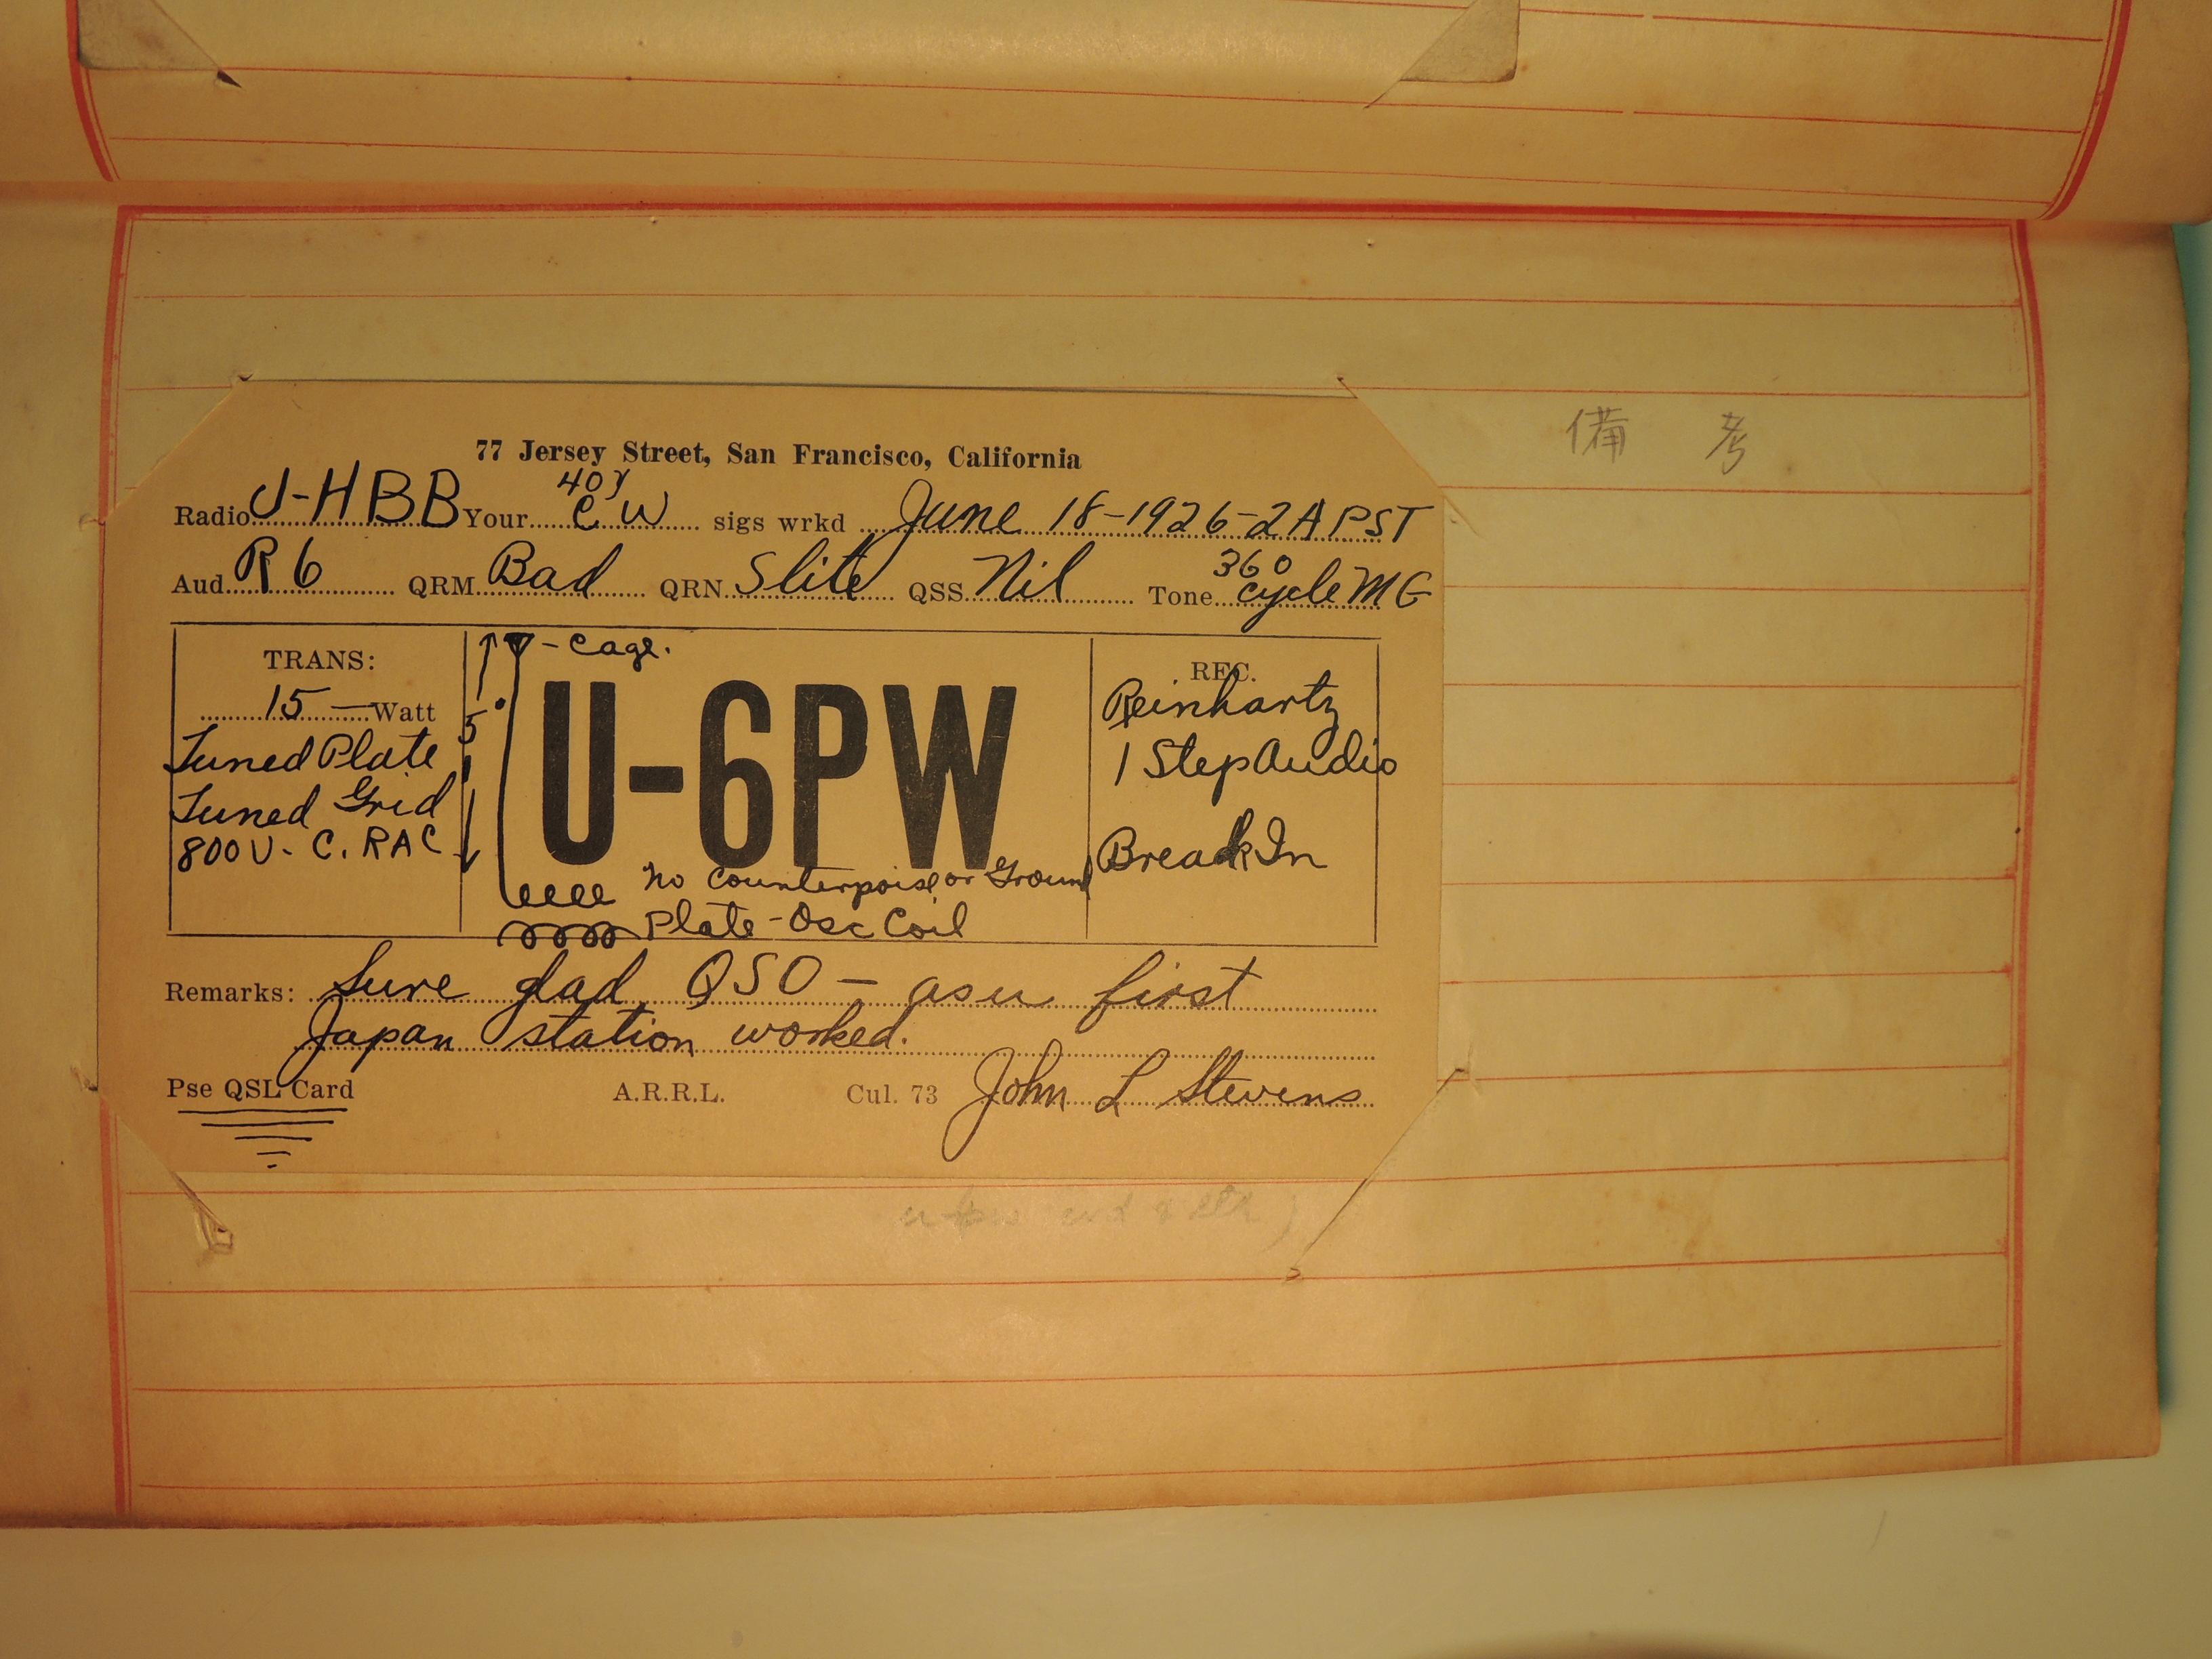 77 Jersey Street, San Francisco, California
40γ
Radio J-HBB Your CW sigs wrkd June 18-1926-2A PST
360
Aud. R6 QRM Bad QRN Slite QSS Nil Tone cycle MG
TRANS:
15 — Watt
Tuned Plate
Tuned Grid
800V- C. RAC
- Cage.
U-6PW
No Counterpoise or Ground
Plate - Osc Coil
REC.
Reinhartz
1 Step Audio
Break In
Remarks: Sure glad QSO — as u first
Japan station worked.
Pse QSL Card A.R.R.L. Cul. 73 John L Stevens
備考